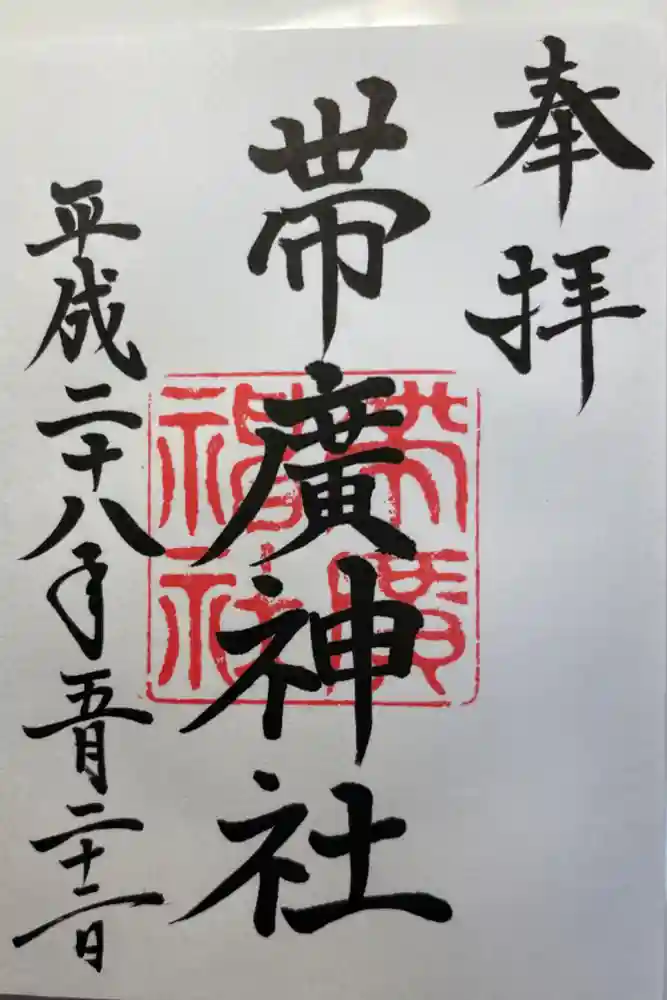 奉拝
帯廣神社
平成二十八年五月二十二日
帯廣
神社